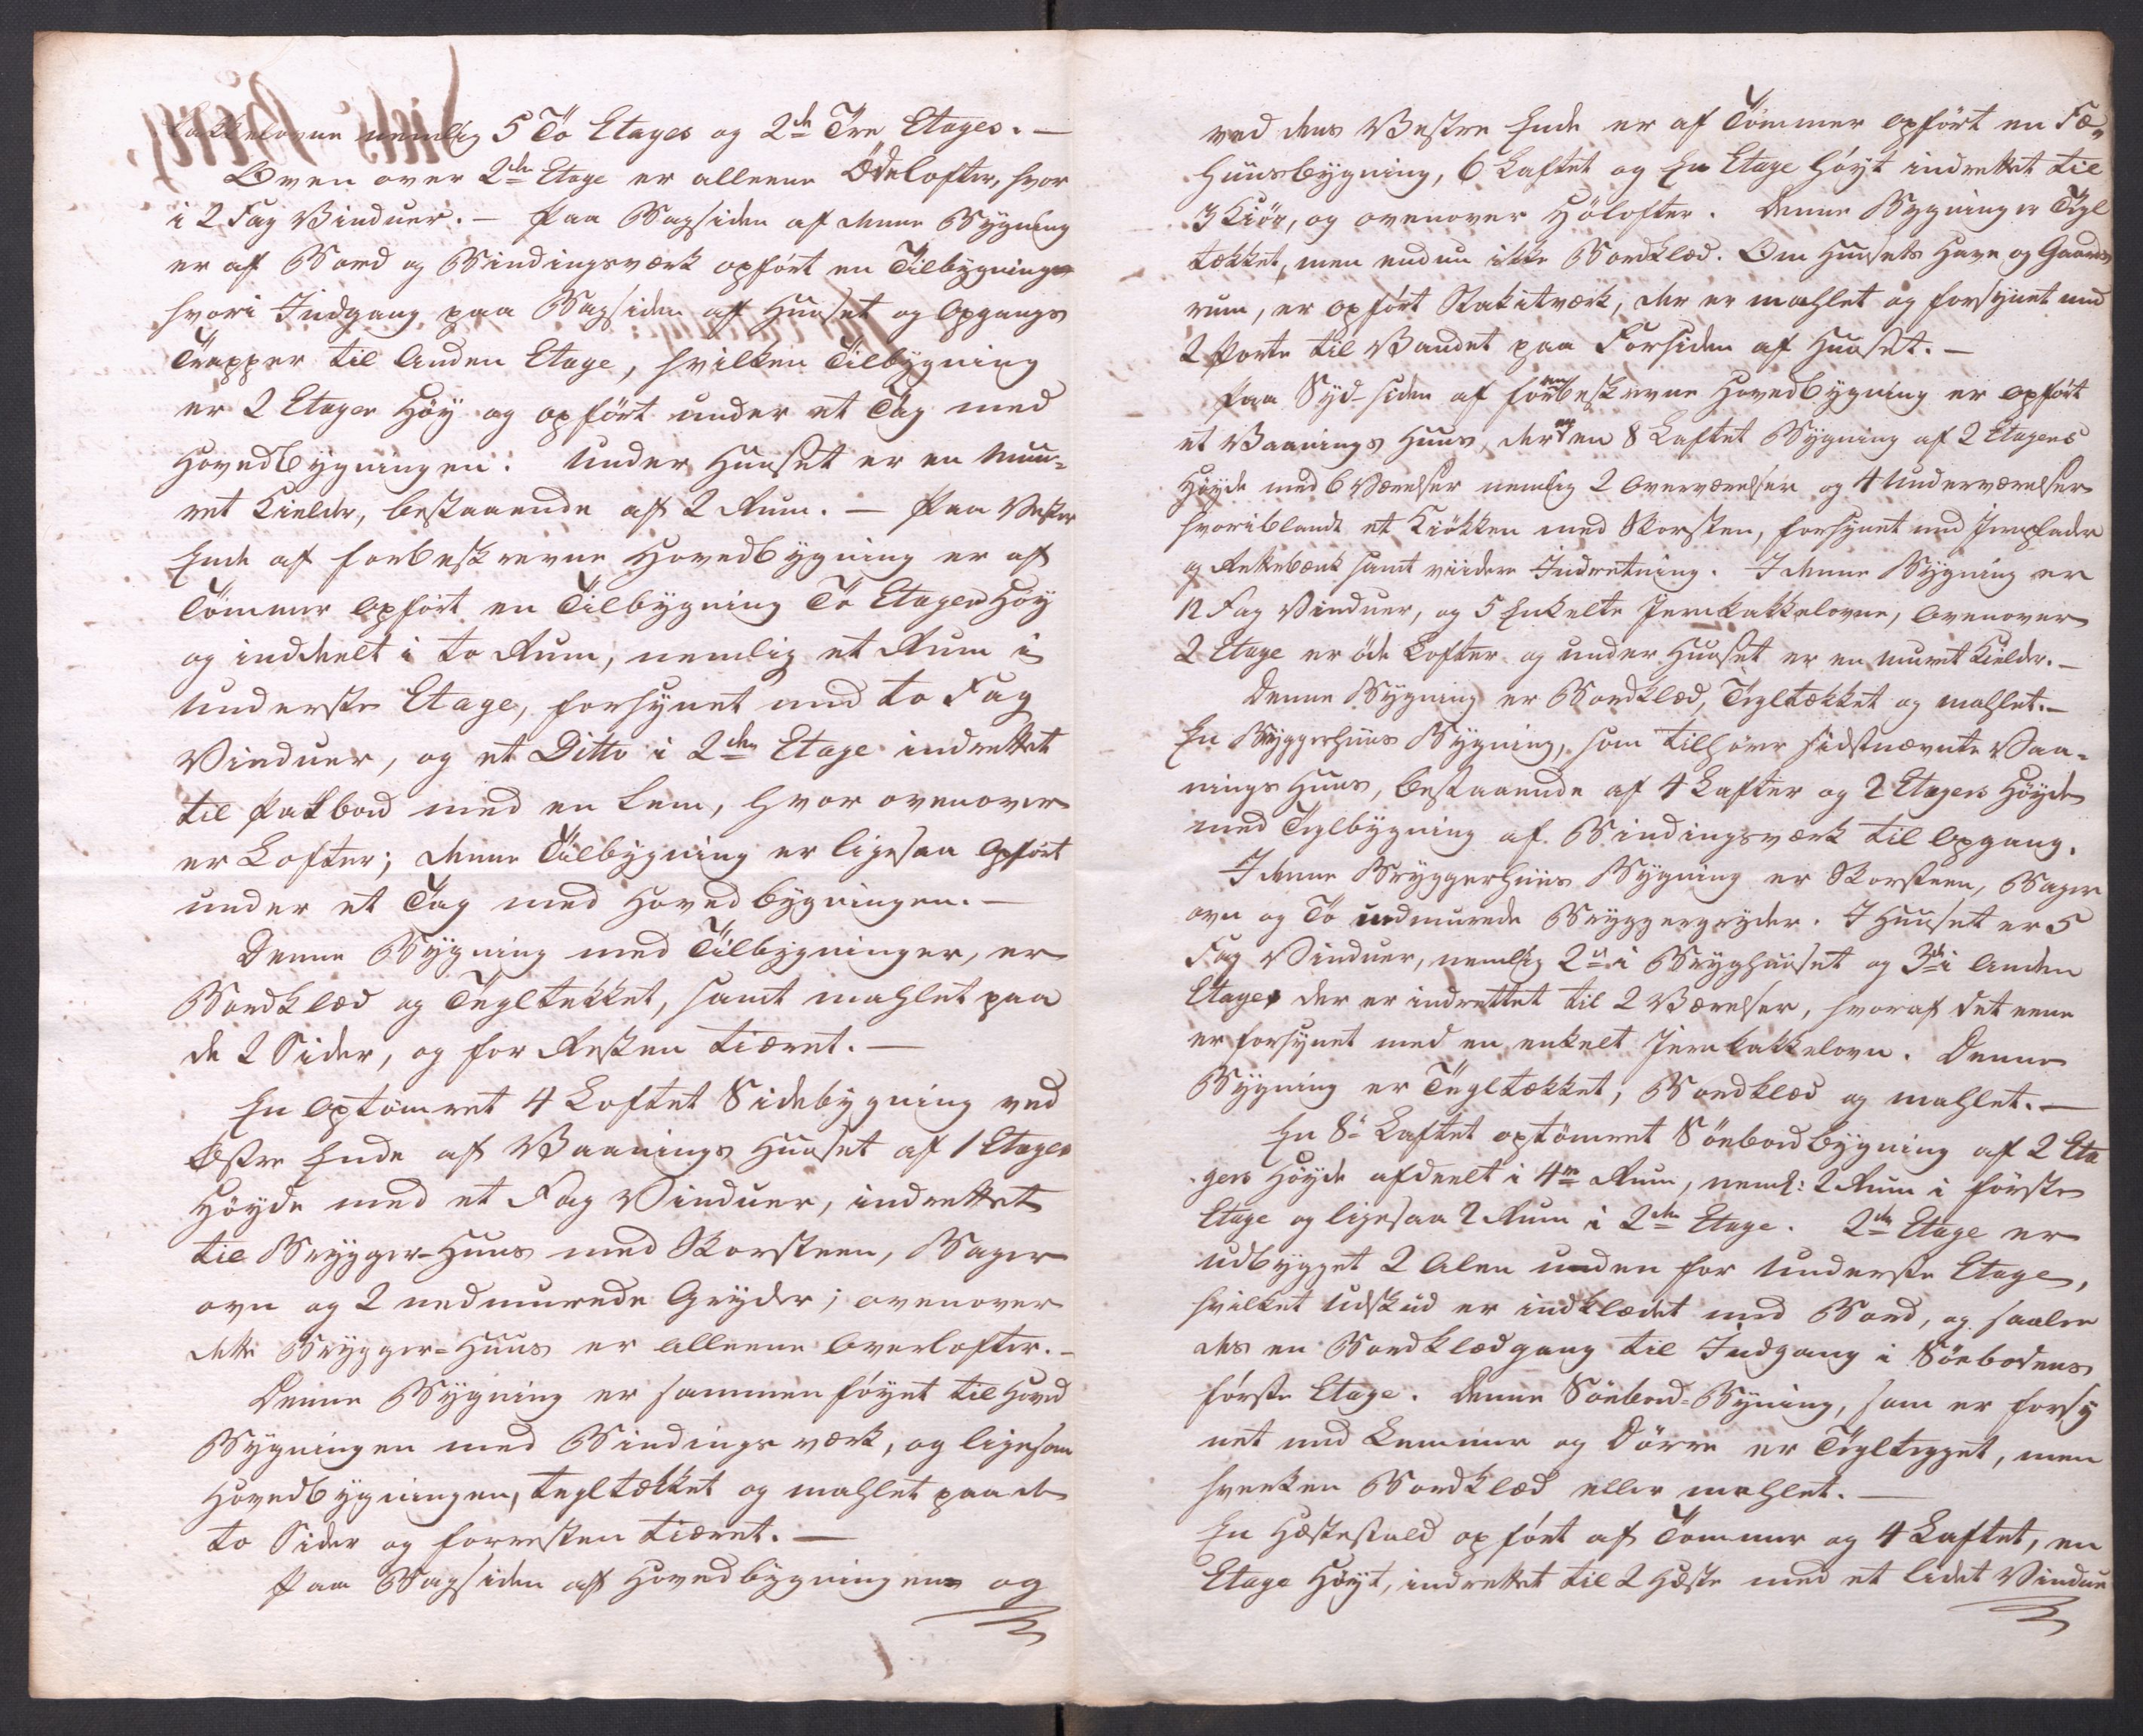 Kakkelovne nemlig 5 To Etages og 2de Tre Etages. —
Oven over 2den Etage er alleene Ödelofter, hvor
i 2 Fag Vinduer. — Paa Bagsiden af denne Bygning
er af Bord og Bindingsværk opfört en Tilbygning
hvori Indgang paa Bagsiden af Huuset og Opgangs
Trapper til Anden Etage, hvilken Tilbygning
er 2 Etager Höy og opfört under et Tag med
Hovedbygningen. Under Huuset er en Muu-
ret Kielder, bestaaende af 2 Rum. — Paa Vestre
Ende af forbeskrevne Hovedbygning er af
Tömmer opfört en Tilbygning To Etager Höy
og inddeelt i to Rum, nemlig et Rum i
underste Etage, forsynet med to Fag
Vinduer, og et Ditto i 2den Etage indrettet
til Pakbod med en Lem, hvor ovenover
er Lofter; denne Tilbygning er ligesaa opfört
under et Tag med Hovedbygningen. —
Denne Bygning med Tilbygninger, er
Bordklæd og Tegltekket, samt mahlet paa
de 2 Sider, og for Resten tiæret. —
En optömret 4 Loftet Sidebygning ved
Östre Ende af Vaanings Huuset af 1 Etages
Höyde med et Fag Vinduer, indrettet
til Brygger-Huus med Skorsteen, Bager
ovn og 2 nedmurede Gryder; ovenover
dette Brygger-Huus er alleene Overlofter. —
Denne Bygning er sammenföyet til Hoved
Bygningen med Bindingsværk, og ligesom
Hovedbygningen, tegltækket og mahlet paa de
to Sider og forresten tiæret. —
Paa Bagsiden af Hovedbygningen og
ved dens Vestre Ende er af Tömmer opfört en Fæ-
huusbygning, 6 Laftet og En Etage höyt indrettet til
3 Kiör, og ovenover Hölofter. Denne Bygning er Tegl
tækket, men endnu ikke Bordklæd. Om Huusets Have og Gaards
rum, er opfört Stakitværk, der er mahlet og forsynet med
2 Porte til Vandet paa Forsiden af Huuset. —
Paa Syd-siden af forenbeskrevne Hovedbygning er opfört
et Vaanings Huus, der og en 8 Laftet Bygning af 2 Etagers
Höyde med 6 Værelser nemlig 2 Overværelser og 4 Underværelser
hvoriblandt et Kiökken med Skorsten, forsynet med Jernplader
og Rettebænk samt viidere Indretning. I denne Bygning er
12 Fag Vinduer, og 5 Enkelte Jernkakkelovne, ovenover
2 Etage er öde Lofter og under Huuset er en muret Kielder. —
Denne Bygning er Bordklæd, Tegltækket og mahlet. —
En Bryggerhuus Bygning, som tilhörer sidstnævnte Vaa-
nings Huus, bestaaende af 4 Lafter og 2 Etagers Höyde
med Tilbygning af Bindingsværk til Opgang.
I denne Bryggerhuus Bygning er Skorsteen, Bager
ovn og To indmurede Bryggergryder. I Huuset er 5
Fag Vinduer, nemlig 2de i Bryghuuset og 3de i Anden
Etage, der er indrettet til 2 Værelser, hvoraf det eene
er forsynet med en enkelt Jernkakkelovn. Denne
Bygning er Tegltækket, Bordklæd og mahlet. —
En 8te Laftet optömret Söebodbygning af 2 Eta
gers Höyde afdeelt i 4re Rum, neml: 2 Rum i förste
Etage og ligesaa 2 Rum i 2den Etage. 2den Etage er
udbygget 2 Alen uden for underste Etage,
hvilket Udskud er indklædet med Bord, og saale
des en Bordklædgang til Indgang i Söebodens
förste Etage. Denne Söebod-Byning, som er forsy
net med Lemmer og Dörre er Tegltegget, men
hverken Bordklæd eller mahlet. —
En Hæstestald opfört af Tömmer og 4 Laftet, en
Etage Höyt, indrettet til 2 Hæste med et lidet Vindue